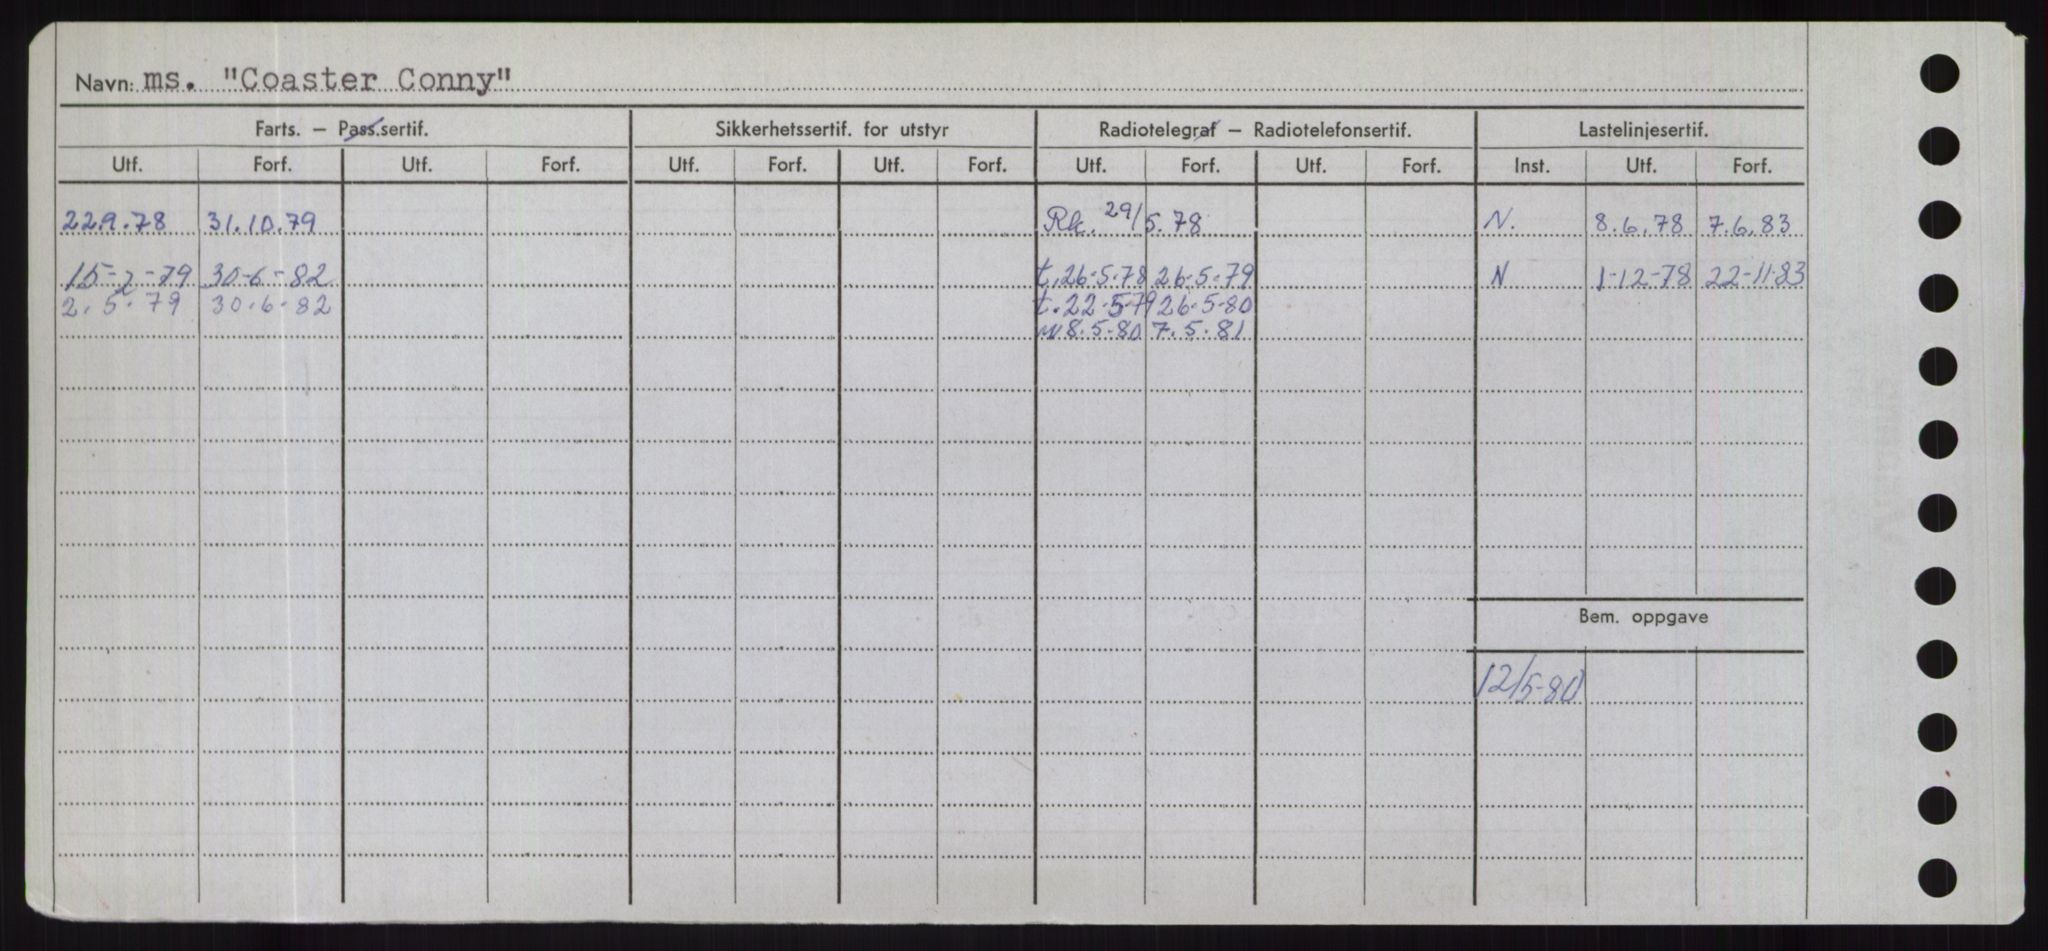 Navn: ms. "Coaster Conny"
Farts. – Pass.sertif. Sikkerhetssertif. for utstyr Radiotelegraf – Radiotelefonsertif. Lastelinjesertif.
Utf. Forf. Utf. Forf. Utf. Forf. Utf. Forf. Utf. Forf. Utf. Forf. Inst. Utf. Forf.
22.9.78 31.10.79 Rk. 29/5.78 N. 8.6.78 7.6.83
15-2-79 30-6-82 t.26-5-78 26-5-79 N 1-12-78 22-11-83
2.5.79 30-6-82 t.22-5-79 26-5-80
8.5-80 7.5.81
Bem. oppgave
12/5-80